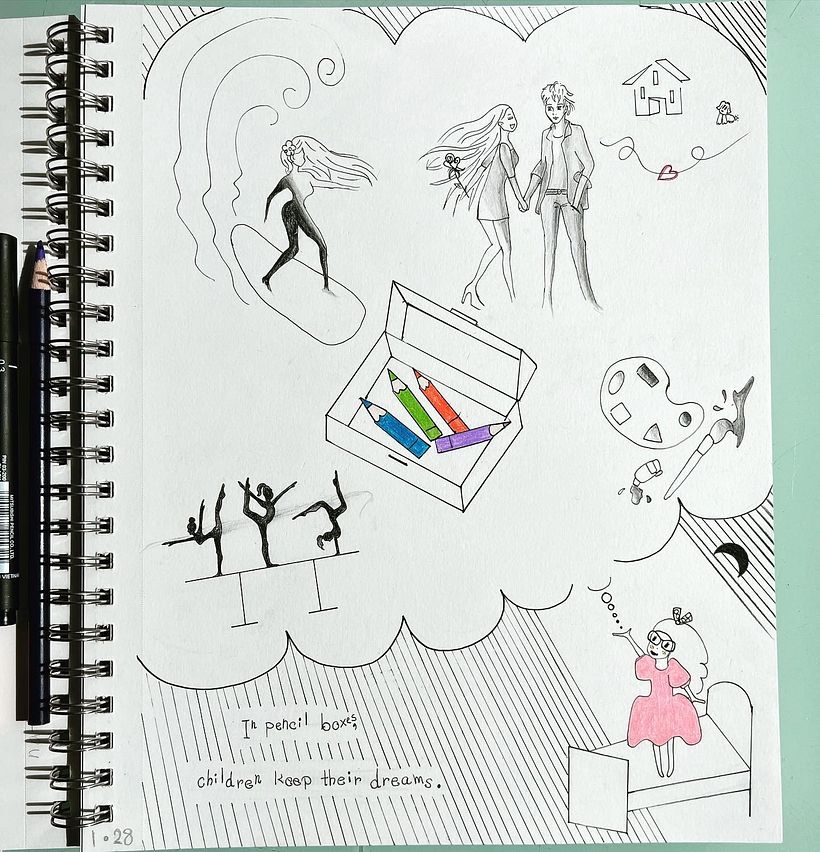 In pencil boxes,
children keep their dreams.
1.28
0.3